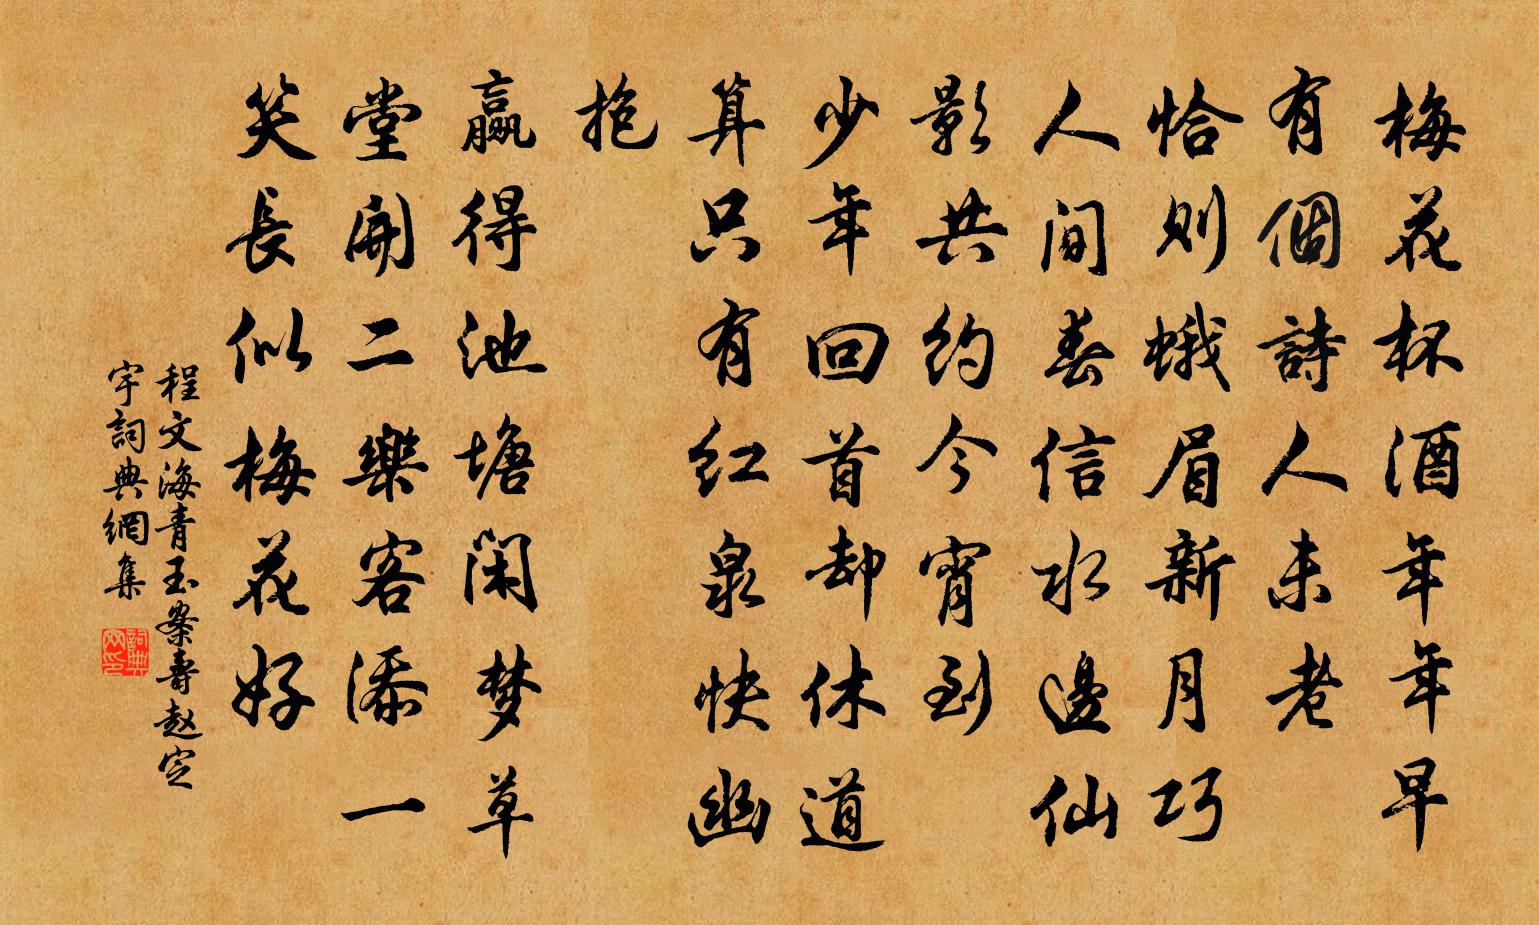 梅花杯酒年年早
有個詩人未老
恰则蛾眉新月巧
人间春信水邊仙
影共约今宵到
少年回首却休道
算只有红泉快幽
抱
赢得池塘闲梦草
堂開二樂客添一
笑長似梅花好
程文海青玉案壽赵定
宇詞典網集
詞典
网印